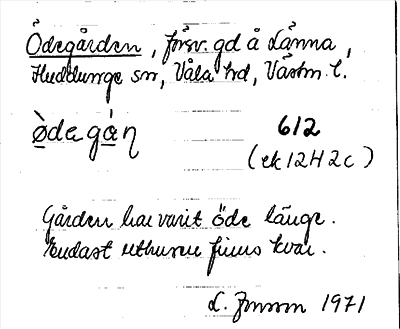 Ödegården, försv. gd å Länna,
Huddunge sn, Våla hd, Västm. l.
ödagán 612
(ek 12H 2c)
Gården har varit öde länge.
Endast uthusen finns kvar.
L. Jonsson 1971